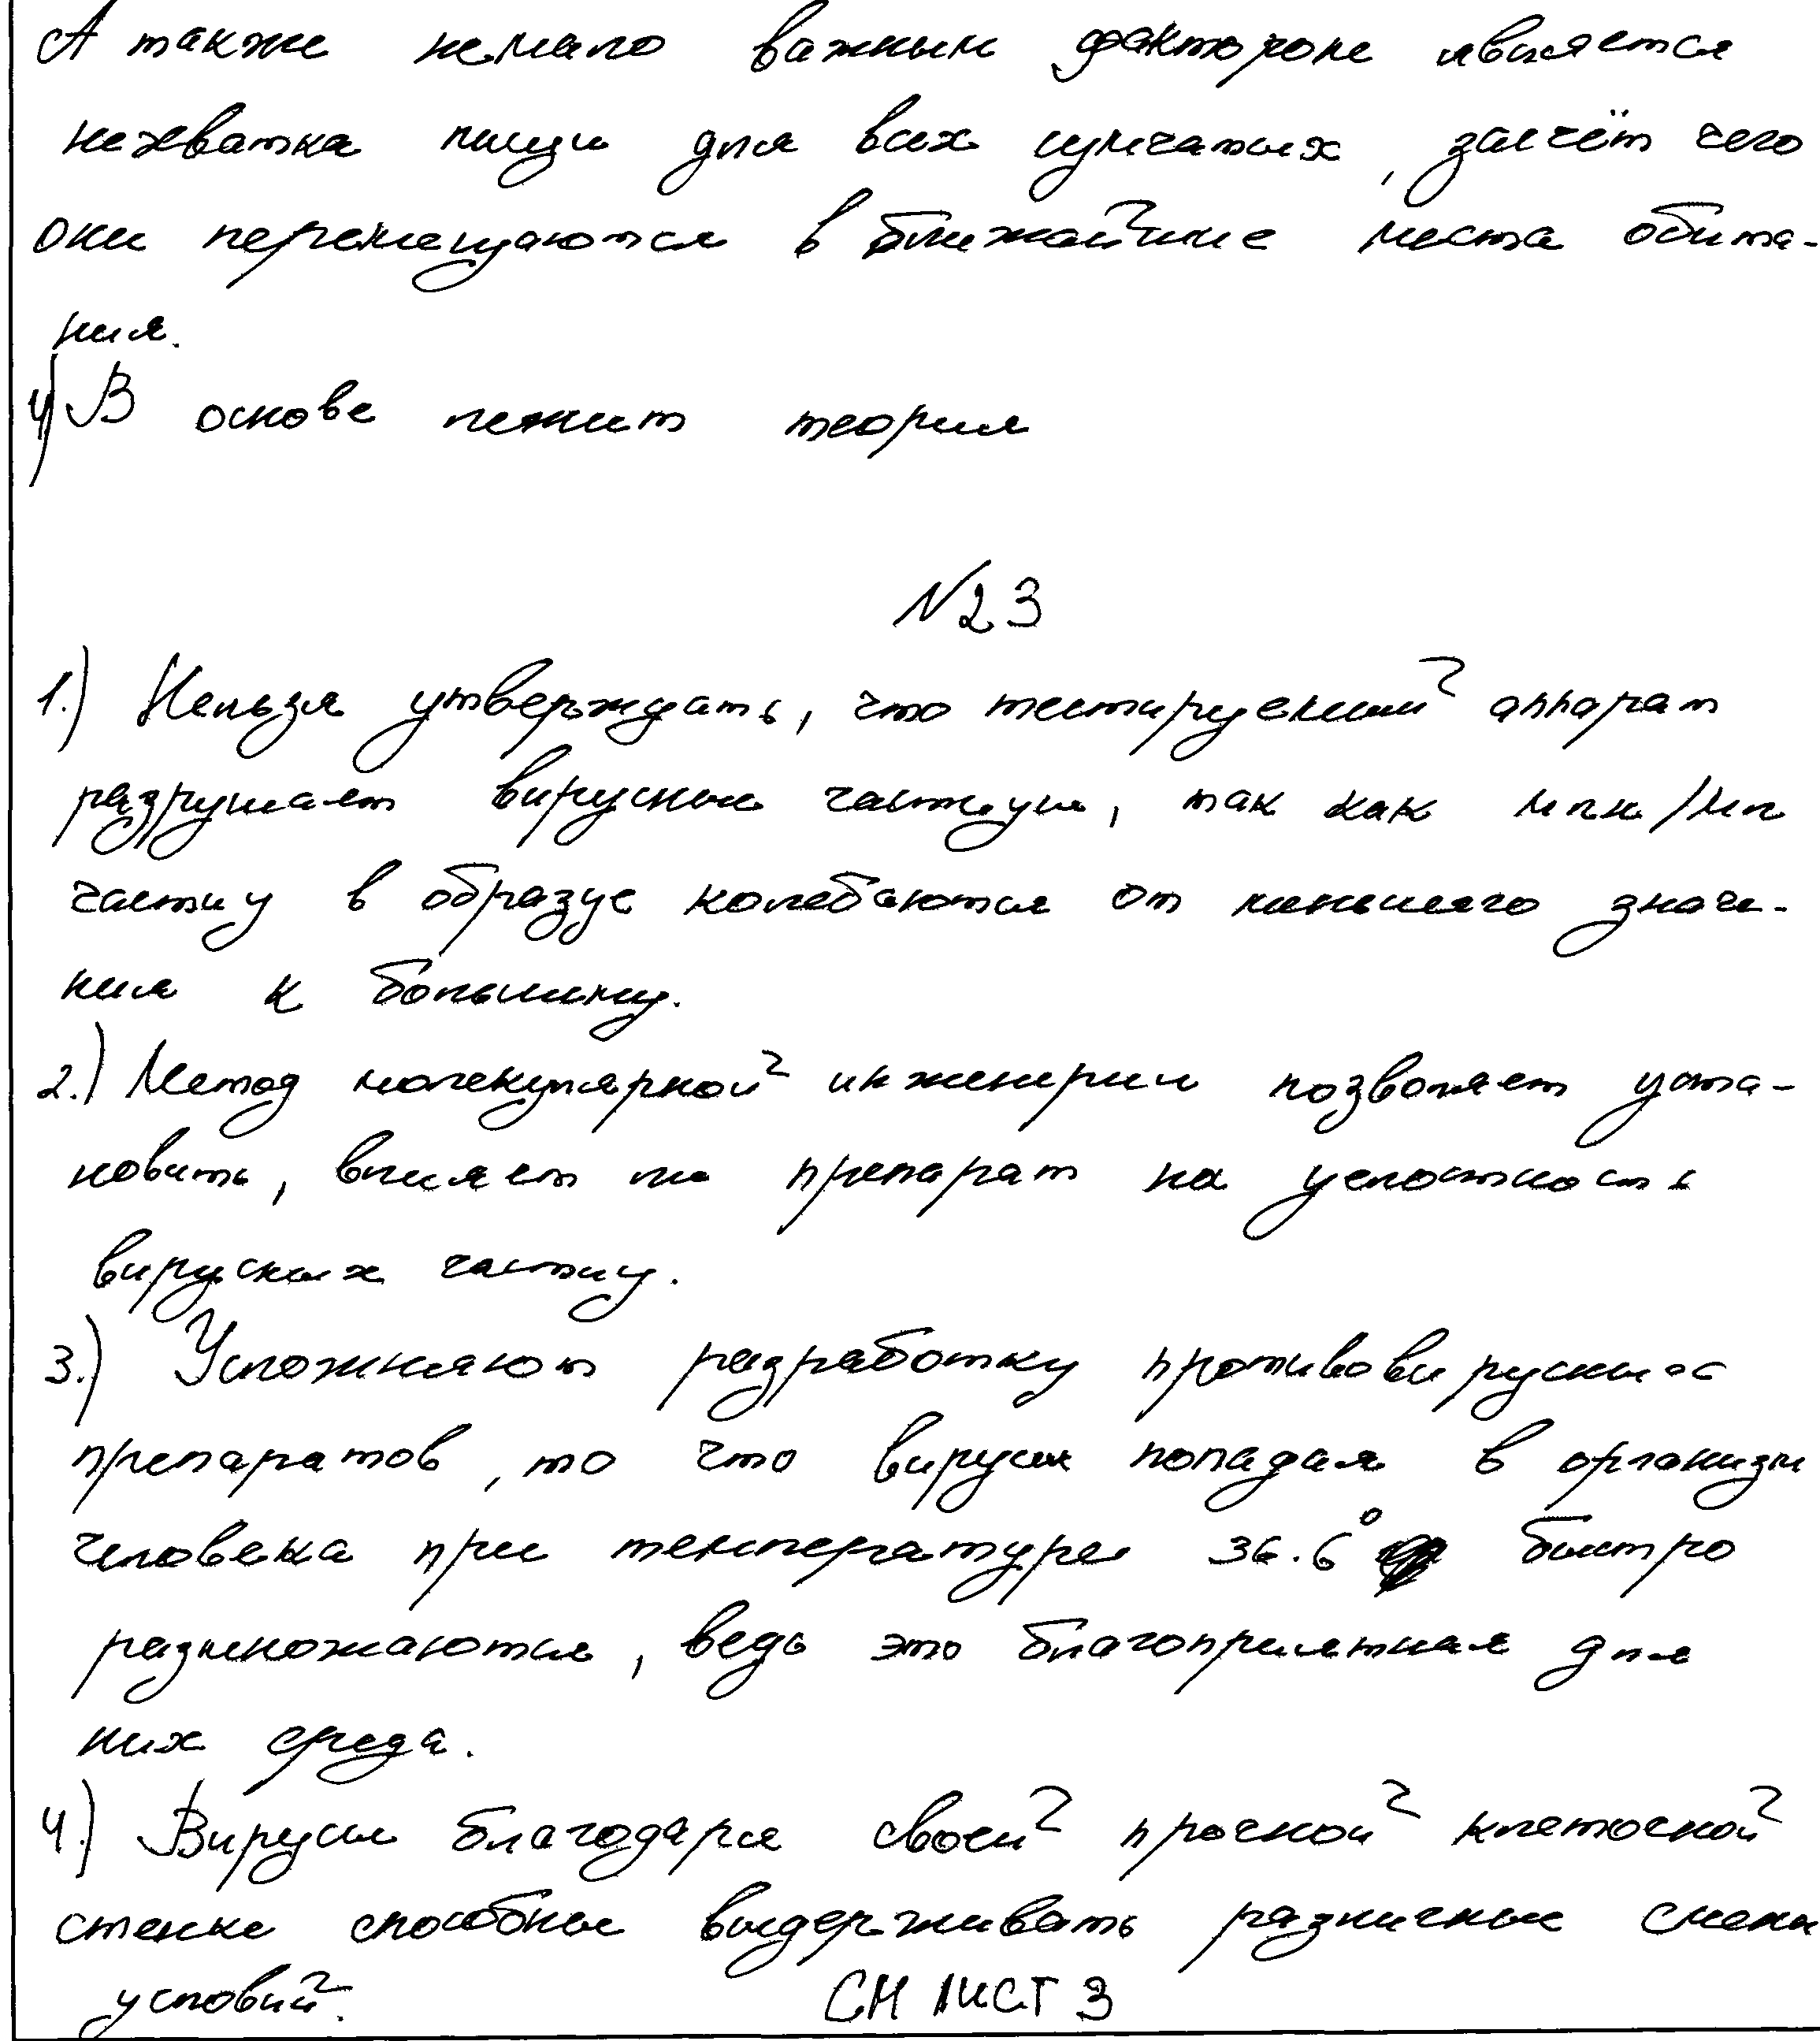 А также немало важным фактором является
нехватка пищи для всех сумчатых, засчёт чего
они перемещаются в ближайшие места обита-
ния.
4) В основе лежит теория
№23
1.) Нельзя утверждать, что тестируемый аппарат
разрушает вирусные частицы, так как млн/мл
частиц в образце колебаются от меньшего значе-
ния к большему.
2.) Метод молекулярной инженерии позволяет уста-
новить, влияет ли препарат на целостность
вирусных частиц.
3.) Усложняют разработку противовирусных
препаратов, то что вирусы попадая в организм
человека при температуре 36.6° быстро
размножаются, ведь это благоприятная для
них среда.
4.) Вирусы благодаря своей прочной клеточной
стенке способны выдерживать различные смены
условий.
СМ ЛИСТ 3